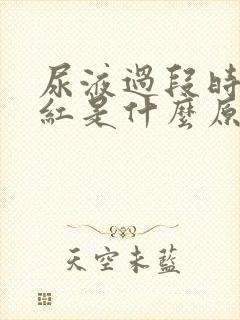 尿液過段時
紅是什麼原
天空未藍